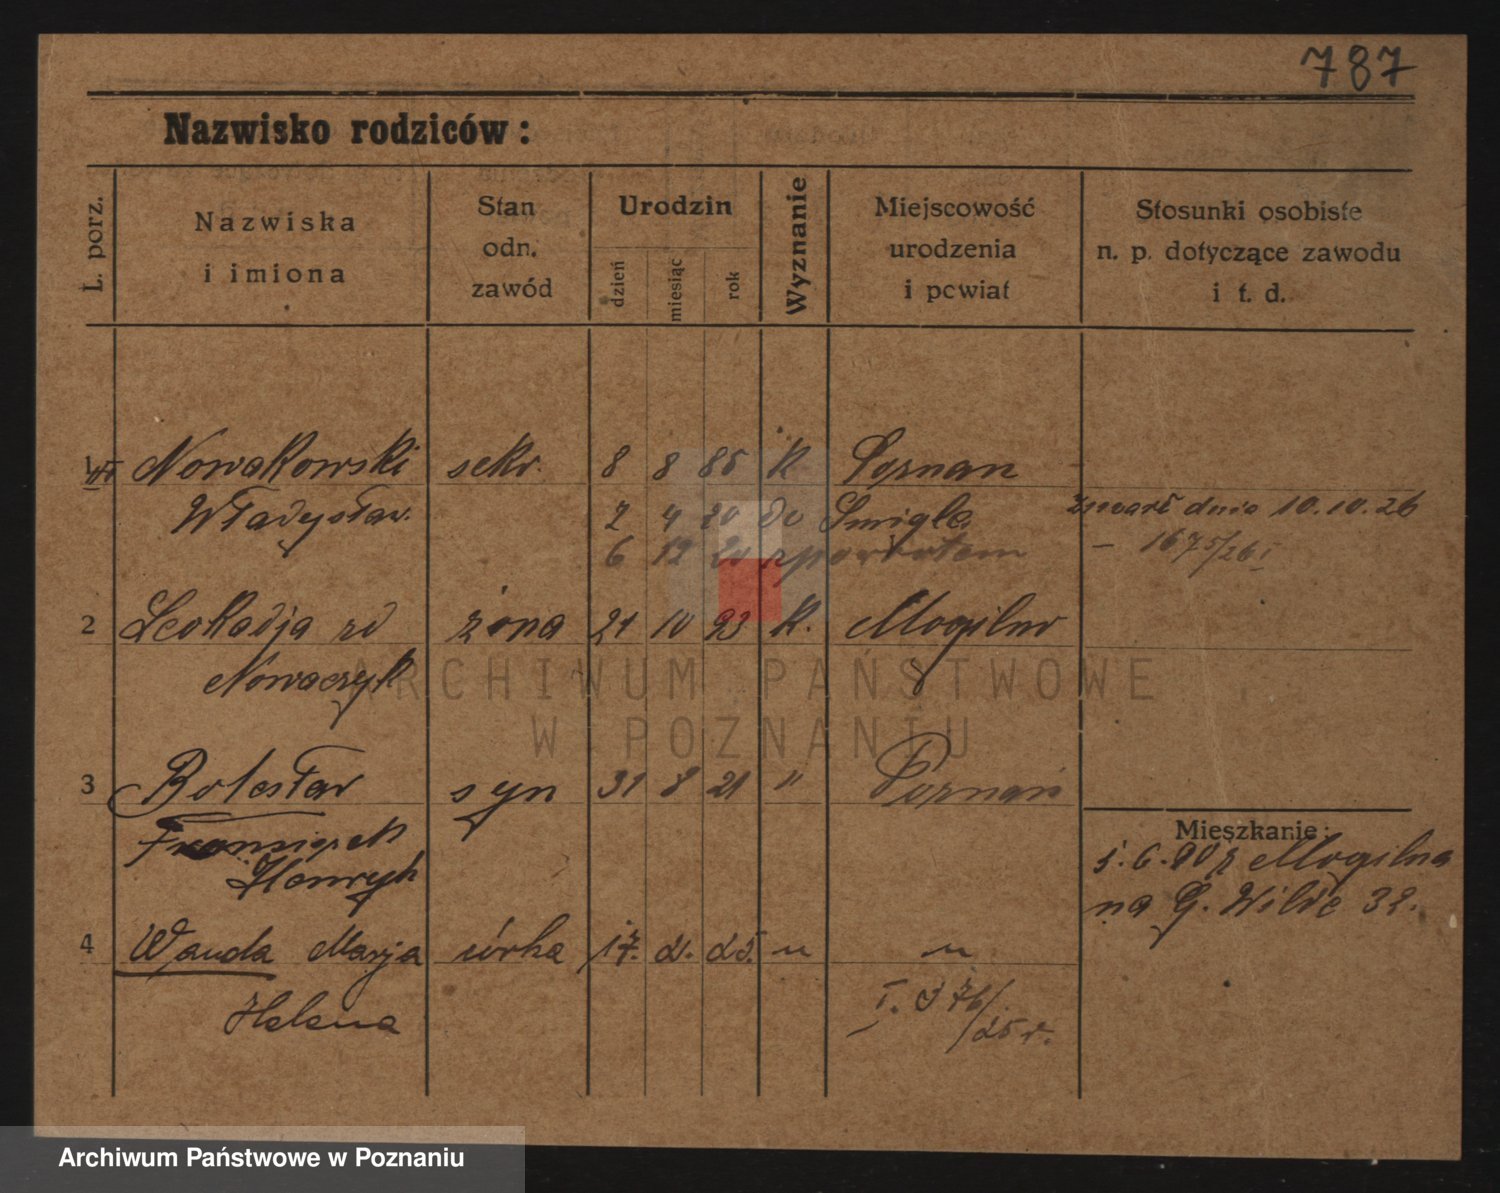 787
Nazwisko rodziców:
L. porz.
Nazwiska
i imiona
Stan
odn.
zawód
Urodzin
dzień
miesiąc
rok
Wyznanie
Miejscowość
urodzenia
i powiat
Stosunki osobiste
n. p. dotyczące zawodu
i t. d.
1 Nowakowski sekr. 8 8 85 K Poznan
Władysław. 2 4 20 do Smigla zmarł dnia 10.10.26
6 12 20 z powrotem — 1675/26 I
2 Leokadja zd żona 21 10 93 K. Mogilno
Nowaczyk
3 Bolesław syn 31 8 21 " Poznań
Franciszek
Henryk
Mieszkanie:
z Mogilna
na G. Wilde 32.
4 Wanda Marja córka 17. 2. 25. " "
Helena I. 376/25 r.
ARCHIWUM PAŃSTWOWE
W POZNANIU
Archiwum Państwowe w Poznaniu